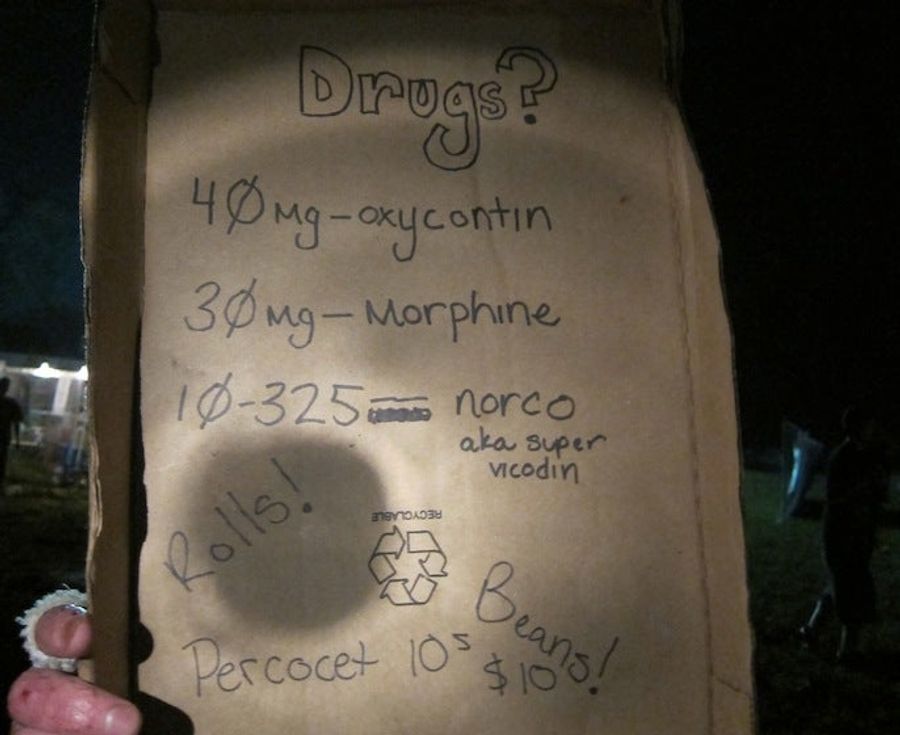 Drugs?
40mg-oxycontin
30mg-Morphine
10-325= norco
aka super
vicodin
Rolls!
RECYCLABLE
Beans!
Percocet 10s $10